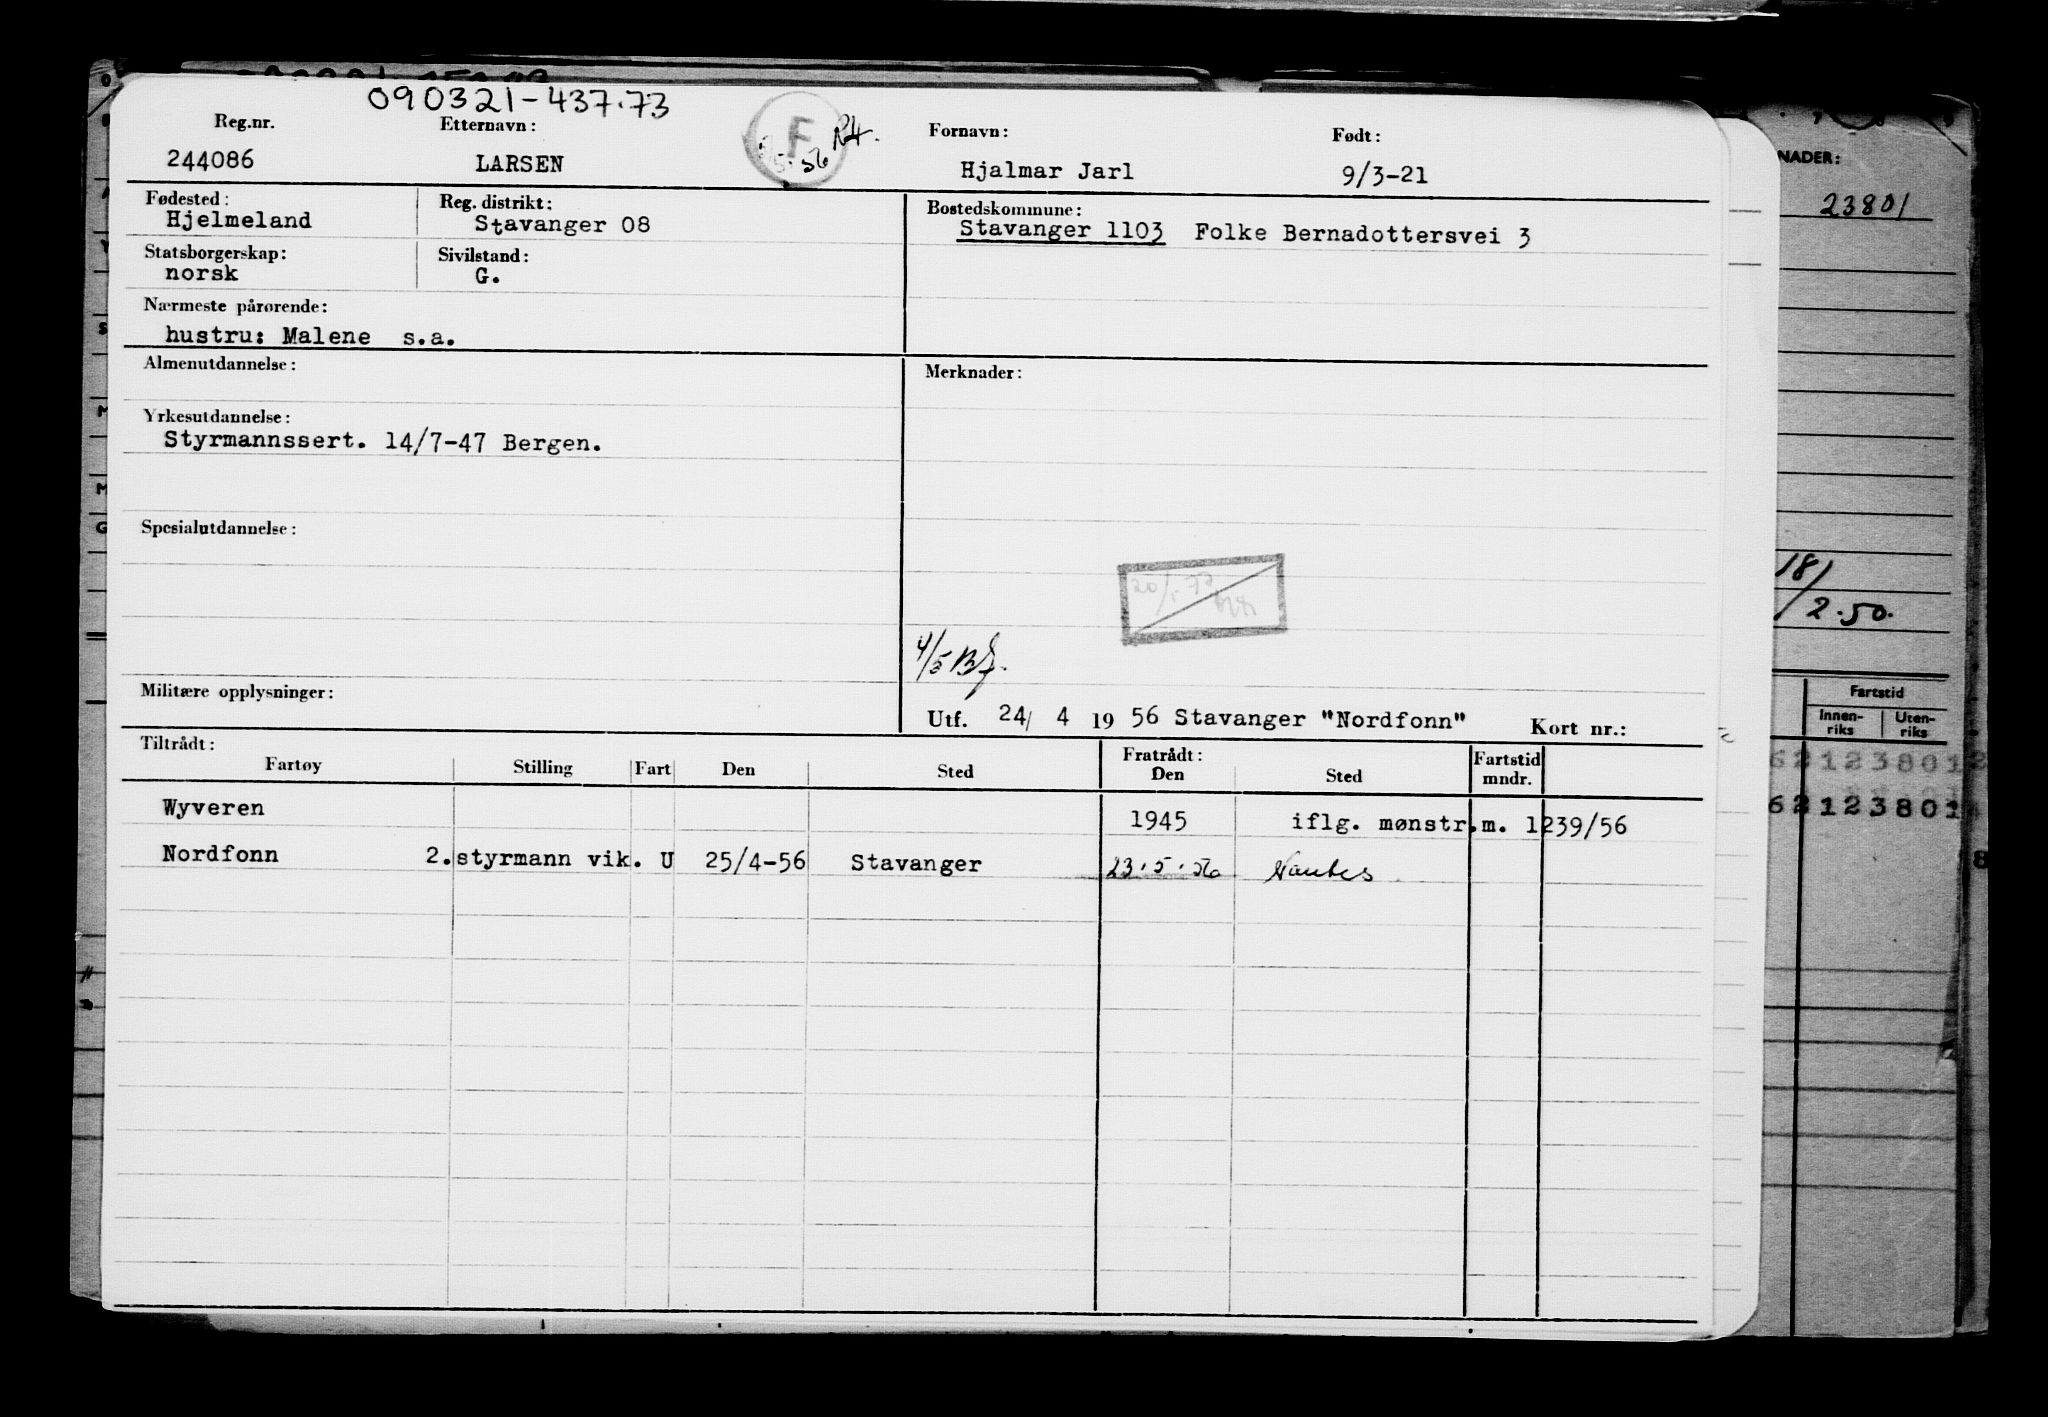 090321-437.73
Reg.nr. Etternavn: Fornavn: Født:
244086 LARSEN F R4. Hjalmar Jarl 9/3-21
Fødested: Reg. distrikt: Bostedskommune:
Hjelmeland Stavanger 08 Stavanger 1103 Folke Bernadottersvei 3
Statsborgerskap: Sivilstand:
norsk G.
Nærmeste pårørende:
hustru: Malene s.a.
Almenutdannelse: Merknader:
Yrkesutdannelse:
Styrmannssert. 14/7-47 Bergen.
Spesialutdannelse:
4/5
Militære opplysninger:
Utf. 24/ 4 19 56 Stavanger "Nordfonn" Kort nr.:
Tiltrådt: Fratrådt:
Fartøy Stilling Fart Den Sted Den Sted Fartstid mndr.
Wyveren 1945 iflg. mønstr.m. 1239/56
Nordfonn 2.styrmann vik. U 25/4-56 Stavanger 23.5.56 Nantes
NADER:
23801
18/
/2.50.
Fartstid
Innen-riks Uten-riks
62123801
62123801